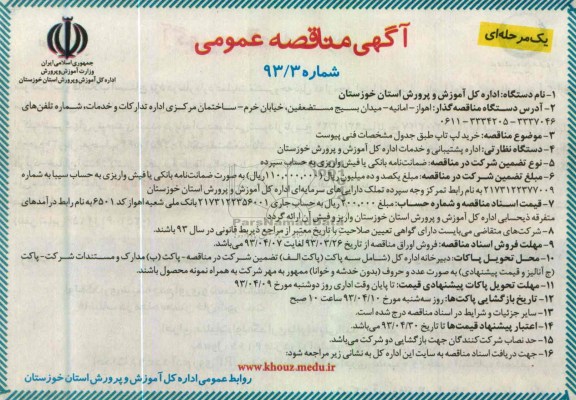 یک مرحله‌ای
آگهی مناقصه عمومی
شماره ۹۳/۳
جمهوری اسلامی ایران
وزارت آموزش و پرورش
اداره کل آموزش و پرورش استان خوزستان
۱- نام دستگاه: اداره کل آموزش و پرورش استان خوزستان
۲- آدرس دستگاه مناقصه‌گذار: اهواز- امانیه- میدان بسیج مستضعفین، خیابان خرم- ساختمان مرکزی اداره تدارکات و خدمات، شماره تلفن‌های
۳۳۳۷۰۴۶ - ۳۳۳۴۲۰۵-۰۶۱۱
۳- موضوع مناقصه: خرید لپ تاپ طبق جدول مشخصات فنی پیوست
۴- دستگاه نظارتی: اداره پشتیبانی و خدمات اداره کل آموزش و پرورش خوزستان
۵- نوع تضمین شرکت در مناقصه: ضمانت‌نامه بانکی یا فیش واریزی به حساب سپرده
۶- مبلغ تضمین شرکت در مناقصه: مبلغ یکصد و ده میلیون ریال (۱۱۰,۰۰۰,۰۰۰ ریال) به صورت ضمانت‌نامه بانکی یا فیش واریزی به حساب سیبا به شماره
۲۱۷۳۱۲۲۳۷۷۰۰۹ به نام رابط تمرکز وجه سپرده تملک دارایی‌های سرمایه‌ای اداره کل آموزش و پرورش استان خوزستان
۷- قیمت اسناد مناقصه و شماره حساب: مبلغ ۲۰۰,۰۰۰ ریال به حساب جاری ۲۱۷۳۱۲۲۳۵۶۰۰۱ بانک ملی شعبه اهواز کد ۶۵۰۱ به نام رابط درآمدهای
متفرقه ذیحسابی اداره کل آموزش و پرورش استان خوزستان واریز و فیش آن ارائه گردد.
ParsNamadData
۸- شرکت‌های متقاضی می‌بایست دارای گواهی تعیین صلاحیت با تاریخ معتبر از مراجع ذیربط قانونی در سال ۹۳ باشند.
۹- مهلت فروش اسناد مناقصه: فروش اوراق مناقصه از تاریخ ۹۳/۰۳/۲۶ لغایت ۹۳/۰۴/۰۷ می‌باشد.
۱۰- محل تحویل پاکات: دبیرخانه اداره کل (شامل سه پاکت (پاکت الف) تضمین شرکت در مناقصه- پاکت (ب) مدارک و مستندات شرکت- پاکت
(ج) آنالیز و قیمت پیشنهادی) به صورت عدد و حروف (بدون خدشه و خوانا) ممهور به مهر شرکت به همراه نمونه محصول باشند.
۱۱- مهلت تحویل پاکات پیشنهادی قیمت: تا پایان وقت اداری روز دوشنبه مورخ ۹۳/۰۴/۰۹
۱۲- تاریخ بازگشایی پاکت‌ها: روز سه‌شنبه مورخ ۹۳/۰۴/۱۰ ساعت ۱۰ صبح
۱۳- سایر جزئیات و شرایط در اسناد مناقصه درج شده است.
۱۴- اعتبار پیشنهاد قیمت‌ها تا تاریخ ۹۳/۰۴/۳۰ می‌باشد.
۱۵- حد نصاب شرکت‌کنندگان جهت بازگشایی دو شرکت می‌باشد.
۱۶- جهت دریافت اسناد مناقصه به سایت این اداره کل به نشانی زیر مراجعه شود:
www.khouz.medu.ir
روابط عمومی اداره کل آموزش و پرورش استان خوزستان